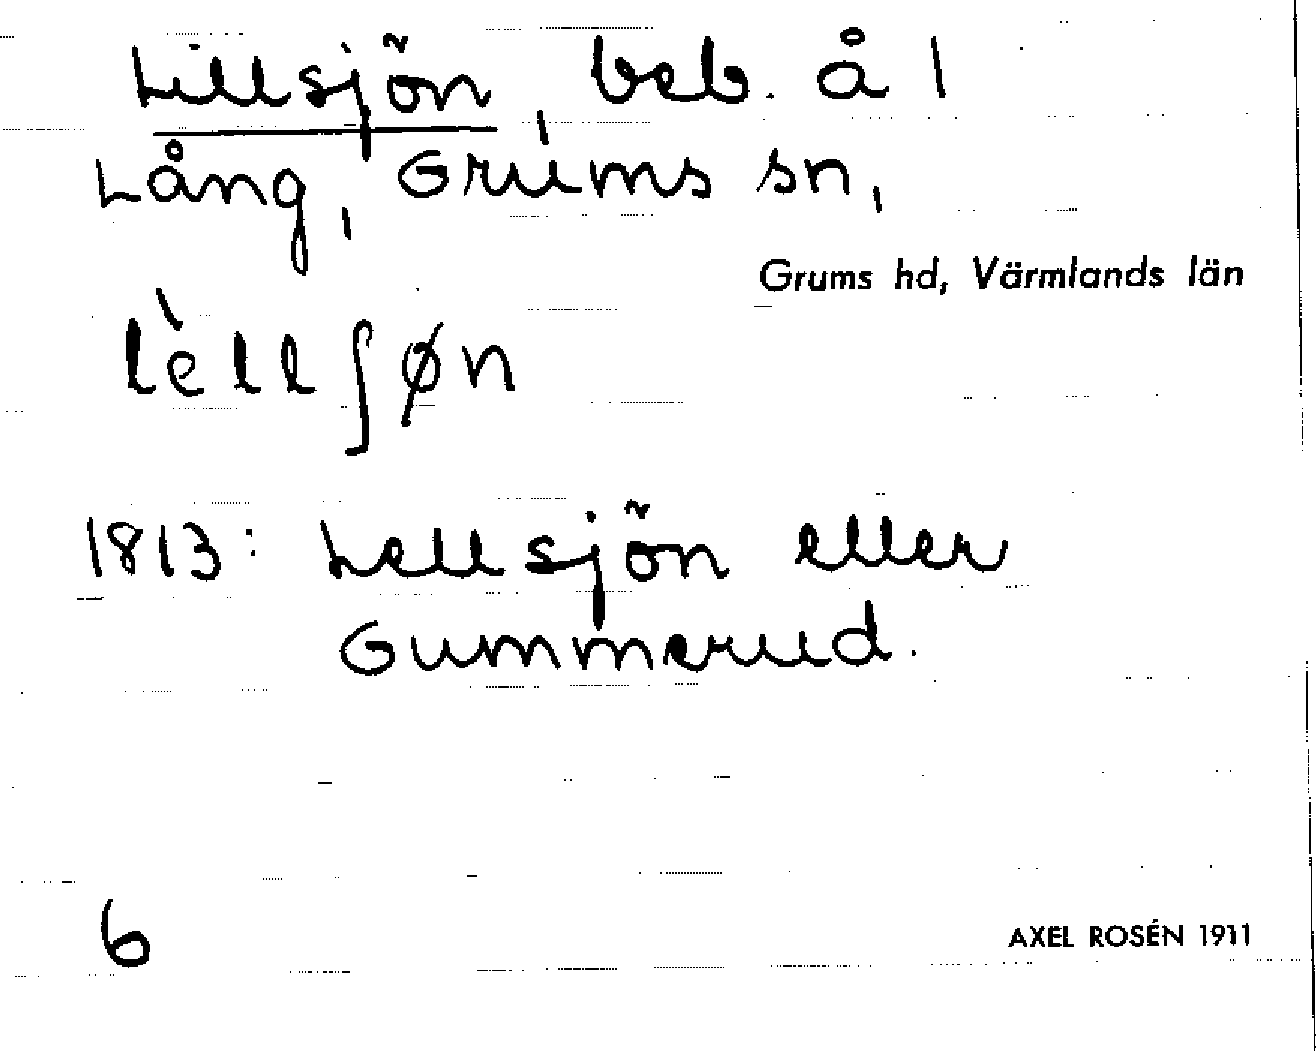 Lillsjön, beb. å 1
Lång, Grums sn,
Grums hd, Värmlands län
lèllʃøn
1813: Lellsjön eller
Gummerud.
6
AXEL ROSÉN 1911